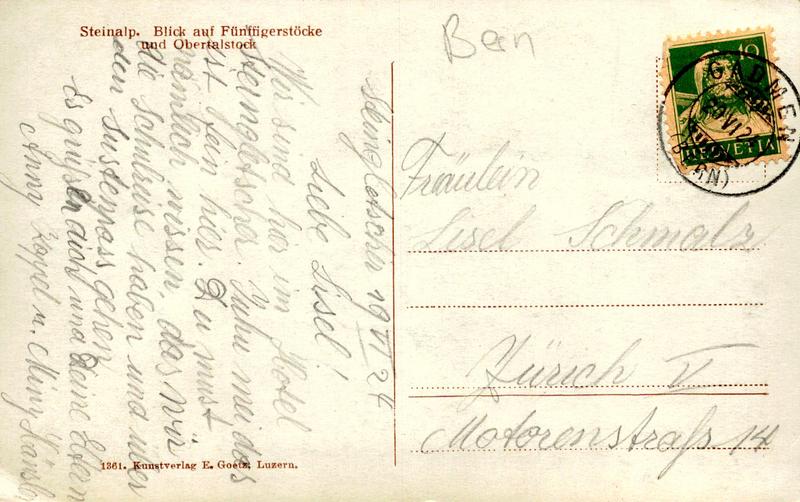 Steinalp. Blick auf Fünffigerstöcke
und Obertalstock
Bern
10
HELVETIA
GADMEN
(BERN)
Steingletscher 19 VI 24
Liebe Lisel!
Wir sind hier im Hotel
Steingletscher. Juhu mei das
ist fein hier. Du must
nämlich wissen, das wir
die Schulreise haben und über
den Sustenpass gehen.
Es grüßen dich und Deine Eltern
Anny Zoppel u. Miny Hänsli
Fräulein
Lisel Schmalz
Zürich V
Motorenstraße 14
1361. Kunstverlag E. Goetz, Luzern.